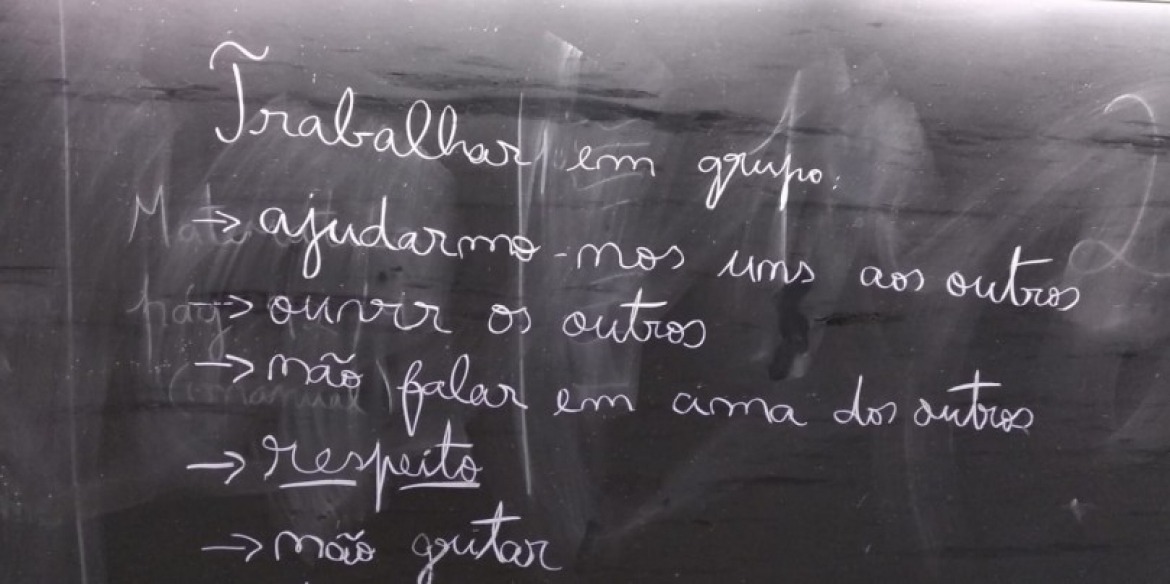 Trabalhar em grupo:
→ ajudarmo-nos uns aos outros
→ ouvir os outros
→ não falar em cima dos outros
→ respeito
→ não gritar